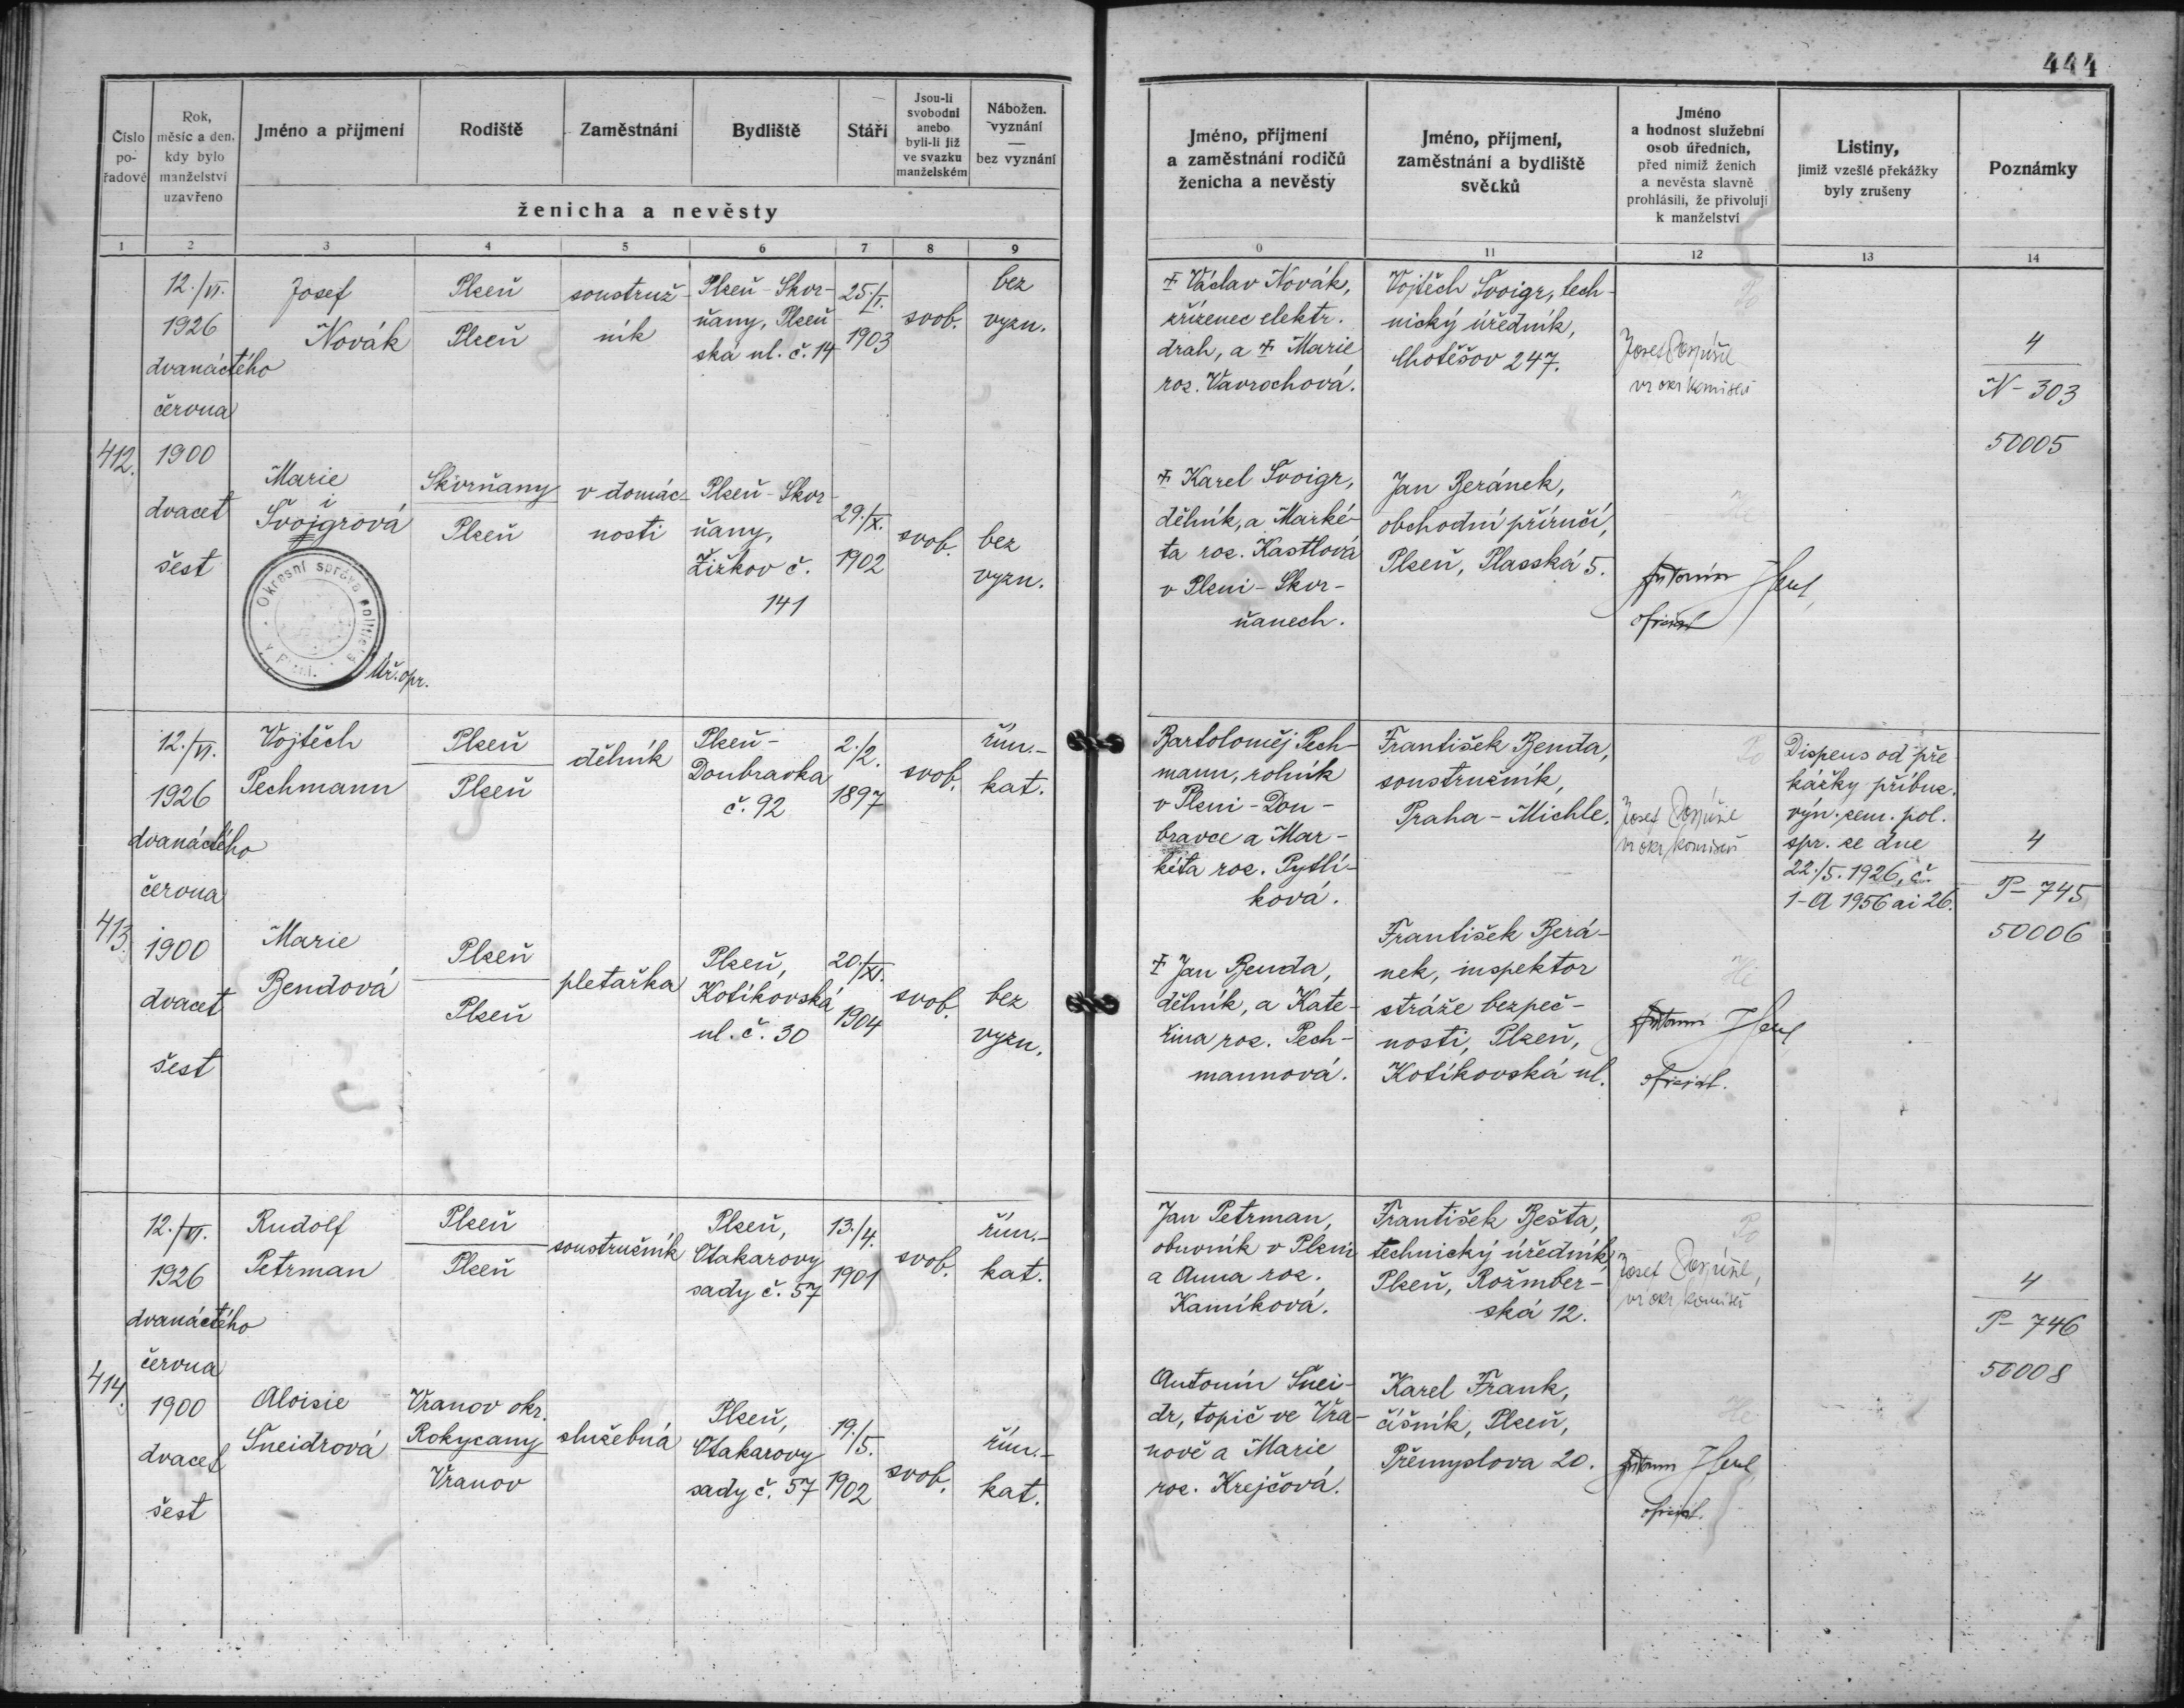 444
Číslo pořadové
Rok, měsíc a den, kdy bylo manželství uzavřeno
Jméno a příjmení
Rodiště
Zaměstnání
Bydliště
Stáří
Jsou-li svobodni anebo byli-li již ve svazku manželském
Nábožen. vyznání — bez vyznání
ženicha a nevěsty
Jméno, příjmení a zaměstnání rodičů ženicha a nevěsty
Jméno, příjmení, zaměstnání a bydliště svědků
Jméno a hodnost služební osob úředních, před nimiž ženich a nevěsta slavně prohlásili, že přivolují k manželství
Listiny, jimiž vzešlé překážky byly zrušeny
Poznámky
1 2 3 4 5 6 7 8 9 0 11 12 13 14
412.
12./VI.
1926
dvanáctého
června
1900
dvacet
šest
Josef
Novák
Plzeň
Plzeň
soustruž-
ník
Plzeň-Skvr-
ňany, Plzeň
ská ul. č. 14
25./I.
1903
svob.
bez
vyzn.
Václav Novák,
zřízenec elektr.
drah, a Marie
roz. Vavrochová.
Vojtěch Švoigr, tech-
nický úředník,
Chotěšov 247.
Josef
vr okr komisař
4
N-303
50005
Marie
i
Švojgrová
Skvrňany
Plzeň
v domác-
nosti
Plzeň-Skvr-
ňany,
Žižkov č.
141
29./X.
1902
svob.
bez
vyzn.
Karel Švoigr,
dělník, a Marké-
ta roz. Kastlová
v Plzni-Skvr-
ňanech.
Jan Beránek,
obchodní příručí,
Plzeň, Plasská 5.
Antonín
oficiál
Okresní správa politická v Plzni.
Úř. opr.
413.
12./VI.
1926
dvanáctého
června
1900
dvacet
šest
Vojtěch
Pechmann
Plzeň
Plzeň
dělník
Plzeň-
Doubravka
č. 92
2./2.
1897
svob.
řím.-
kat.
Bartoloměj Pech-
mann, rolník
v Plzni-Dou-
bravce a Mar-
kéta roz. Pytlí-
ková.
František Benda,
soustružník,
Praha-Michle.
Josef
vr okr komisař
Dispens od pře-
kážky příbuz.
výn. zem. pol.
spr. ze dne
22./5. 1926, č.
1-A 1956 ai 26.
4
P-745
50006
Marie
Bendová
Plzeň
Plzeň
pletařka
Plzeň,
Kotíkovská
ul. č. 30
20./XI.
1904
svob.
bez
vyzn.
Jan Benda,
dělník, a Kate-
řina roz. Pech-
mannová.
František Berá-
nek, inspektor
stráže bezpeč-
nosti, Plzeň,
Kotíkovská ul.
Antonín
oficiál.
414.
12./VI.
1926
dvanáctého
června
1900
dvacet
šest
Rudolf
Petrman
Plzeň
Plzeň
soustružník
Plzeň,
Otakarovy
sady č. 57
13./4.
1901
svob.
řím.-
kat.
Jan Petrman,
obuvník v Plzni
a Anna roz.
Kamíková.
František Bešta,
technický úředník,
Plzeň, Rožmber-
ská 12.
Josef
vr okr komisař
4
P-746
50008
Aloisie
Šneidrová
Vranov okr.
Rokycany
Vranov
služebná
Plzeň,
Otakarovy
sady č. 57
19./5.
1902
svob.
řím.-
kat.
Antonín Šnei-
dr, topič ve Vra-
nově a Marie
roz. Krejčová.
Karel Frank,
číšník, Plzeň,
Přemyslova 20.
Antonín
oficiál.